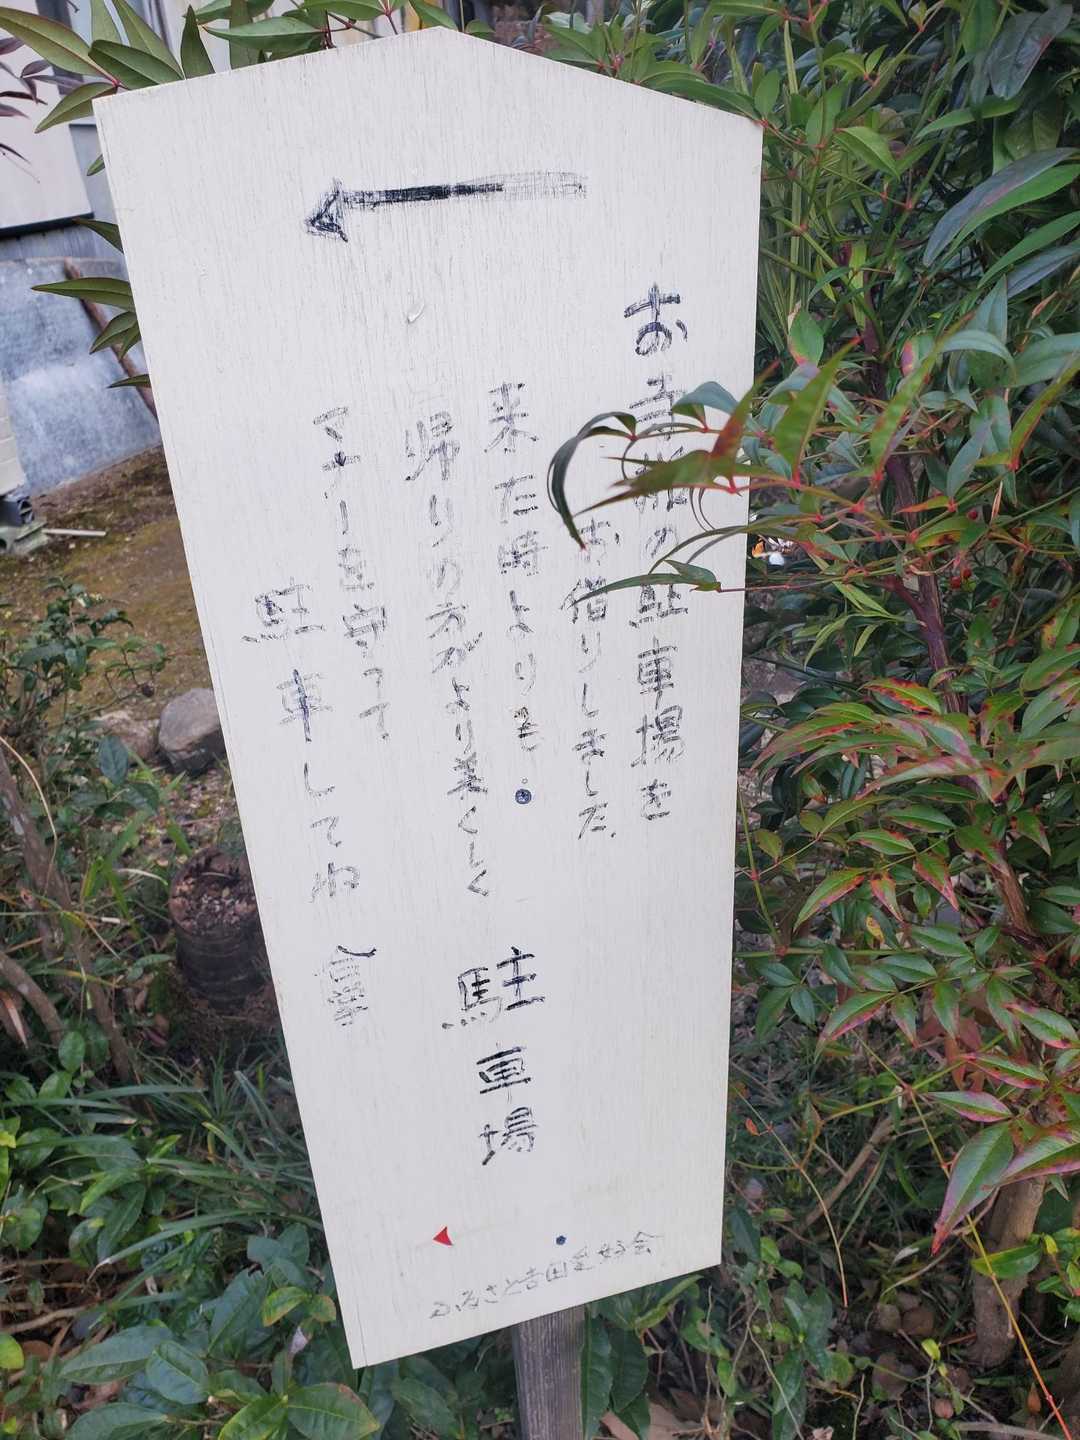 お寺様の駐車場を
お借りしました。
来た時よりも
帰りの方がより美くしく
マナーを守って
駐車してね
駐車場
ふるさと吉田を好会